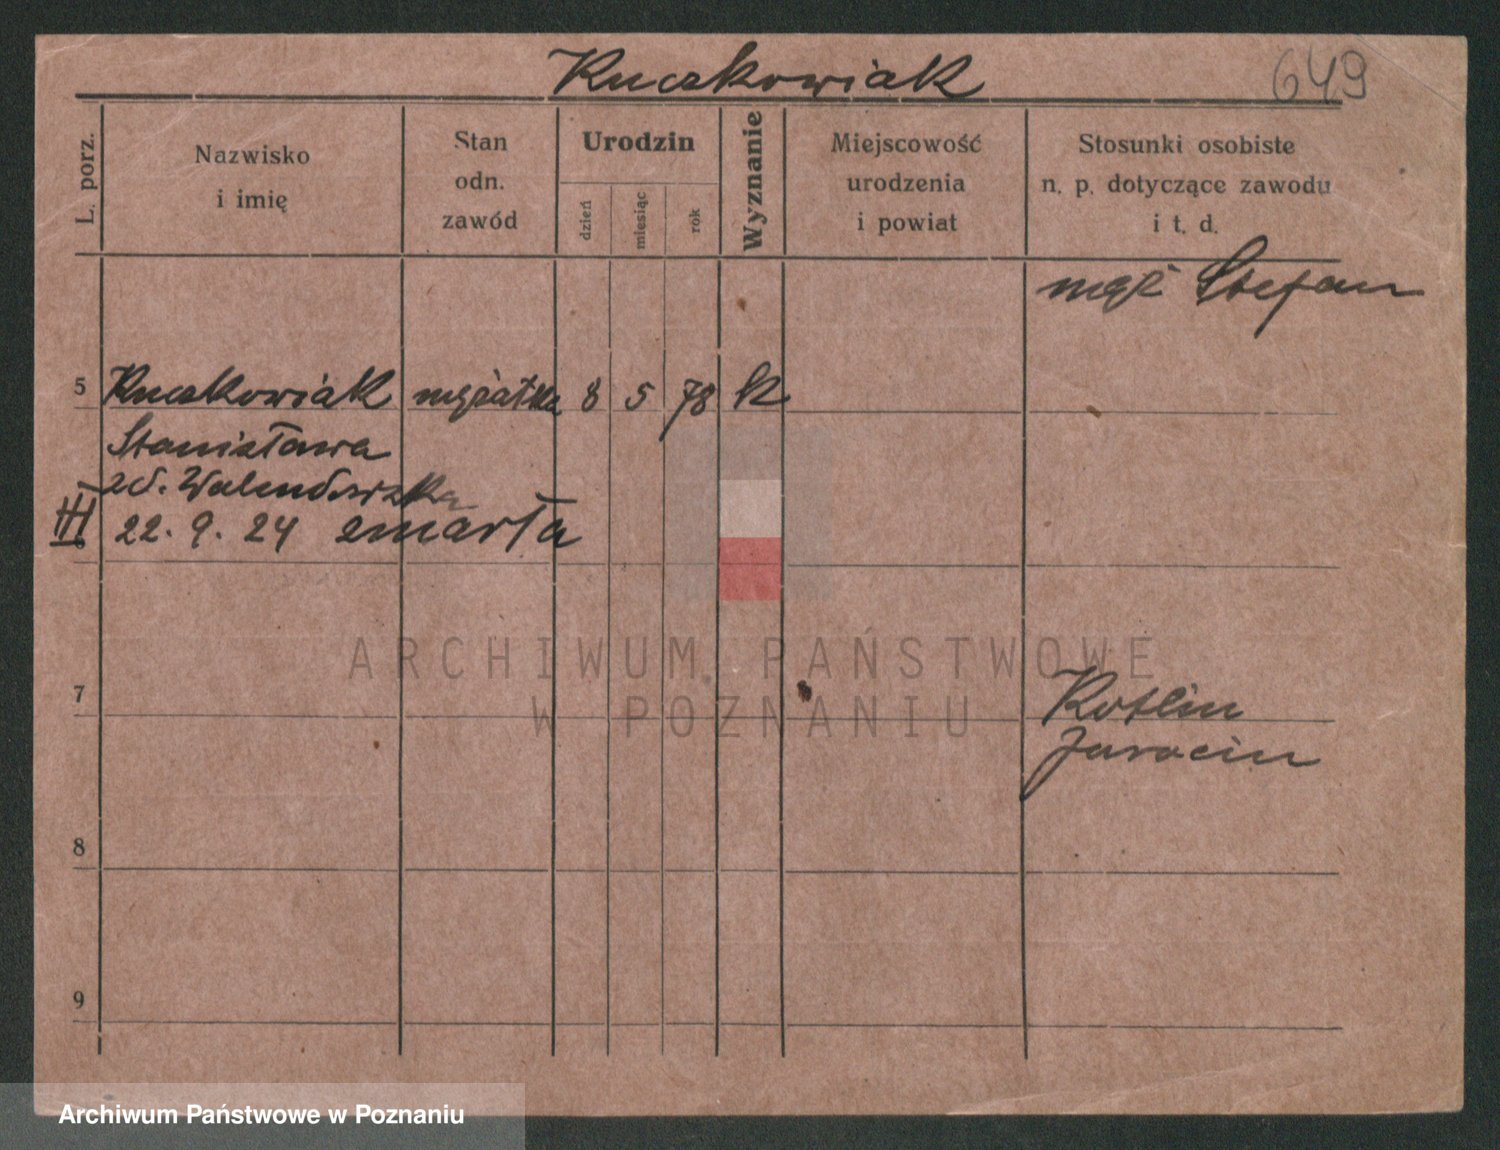 Kuczkowiak
649
L. porz.
Nazwisko
i imię
Stan
odn.
zawód
Urodzin
dzień
miesiąc
rok
Wyznanie
Miejscowość
urodzenia
i powiat
Stosunki osobiste
n. p. dotyczące zawodu
i t. d.
mąż Stefan
5 Kuczkowiak mężatka 8 5 78 k
Stanisława
22. 9. 24 zmarła
ARCHIWUM PAŃSTWOWE
W POZNANIU
7
Kotlin
Jarocin
8
9
Archiwum Państwowe w Poznaniu